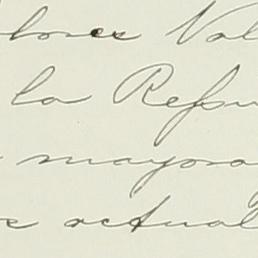 lores Val
la Repu
mayora
actual